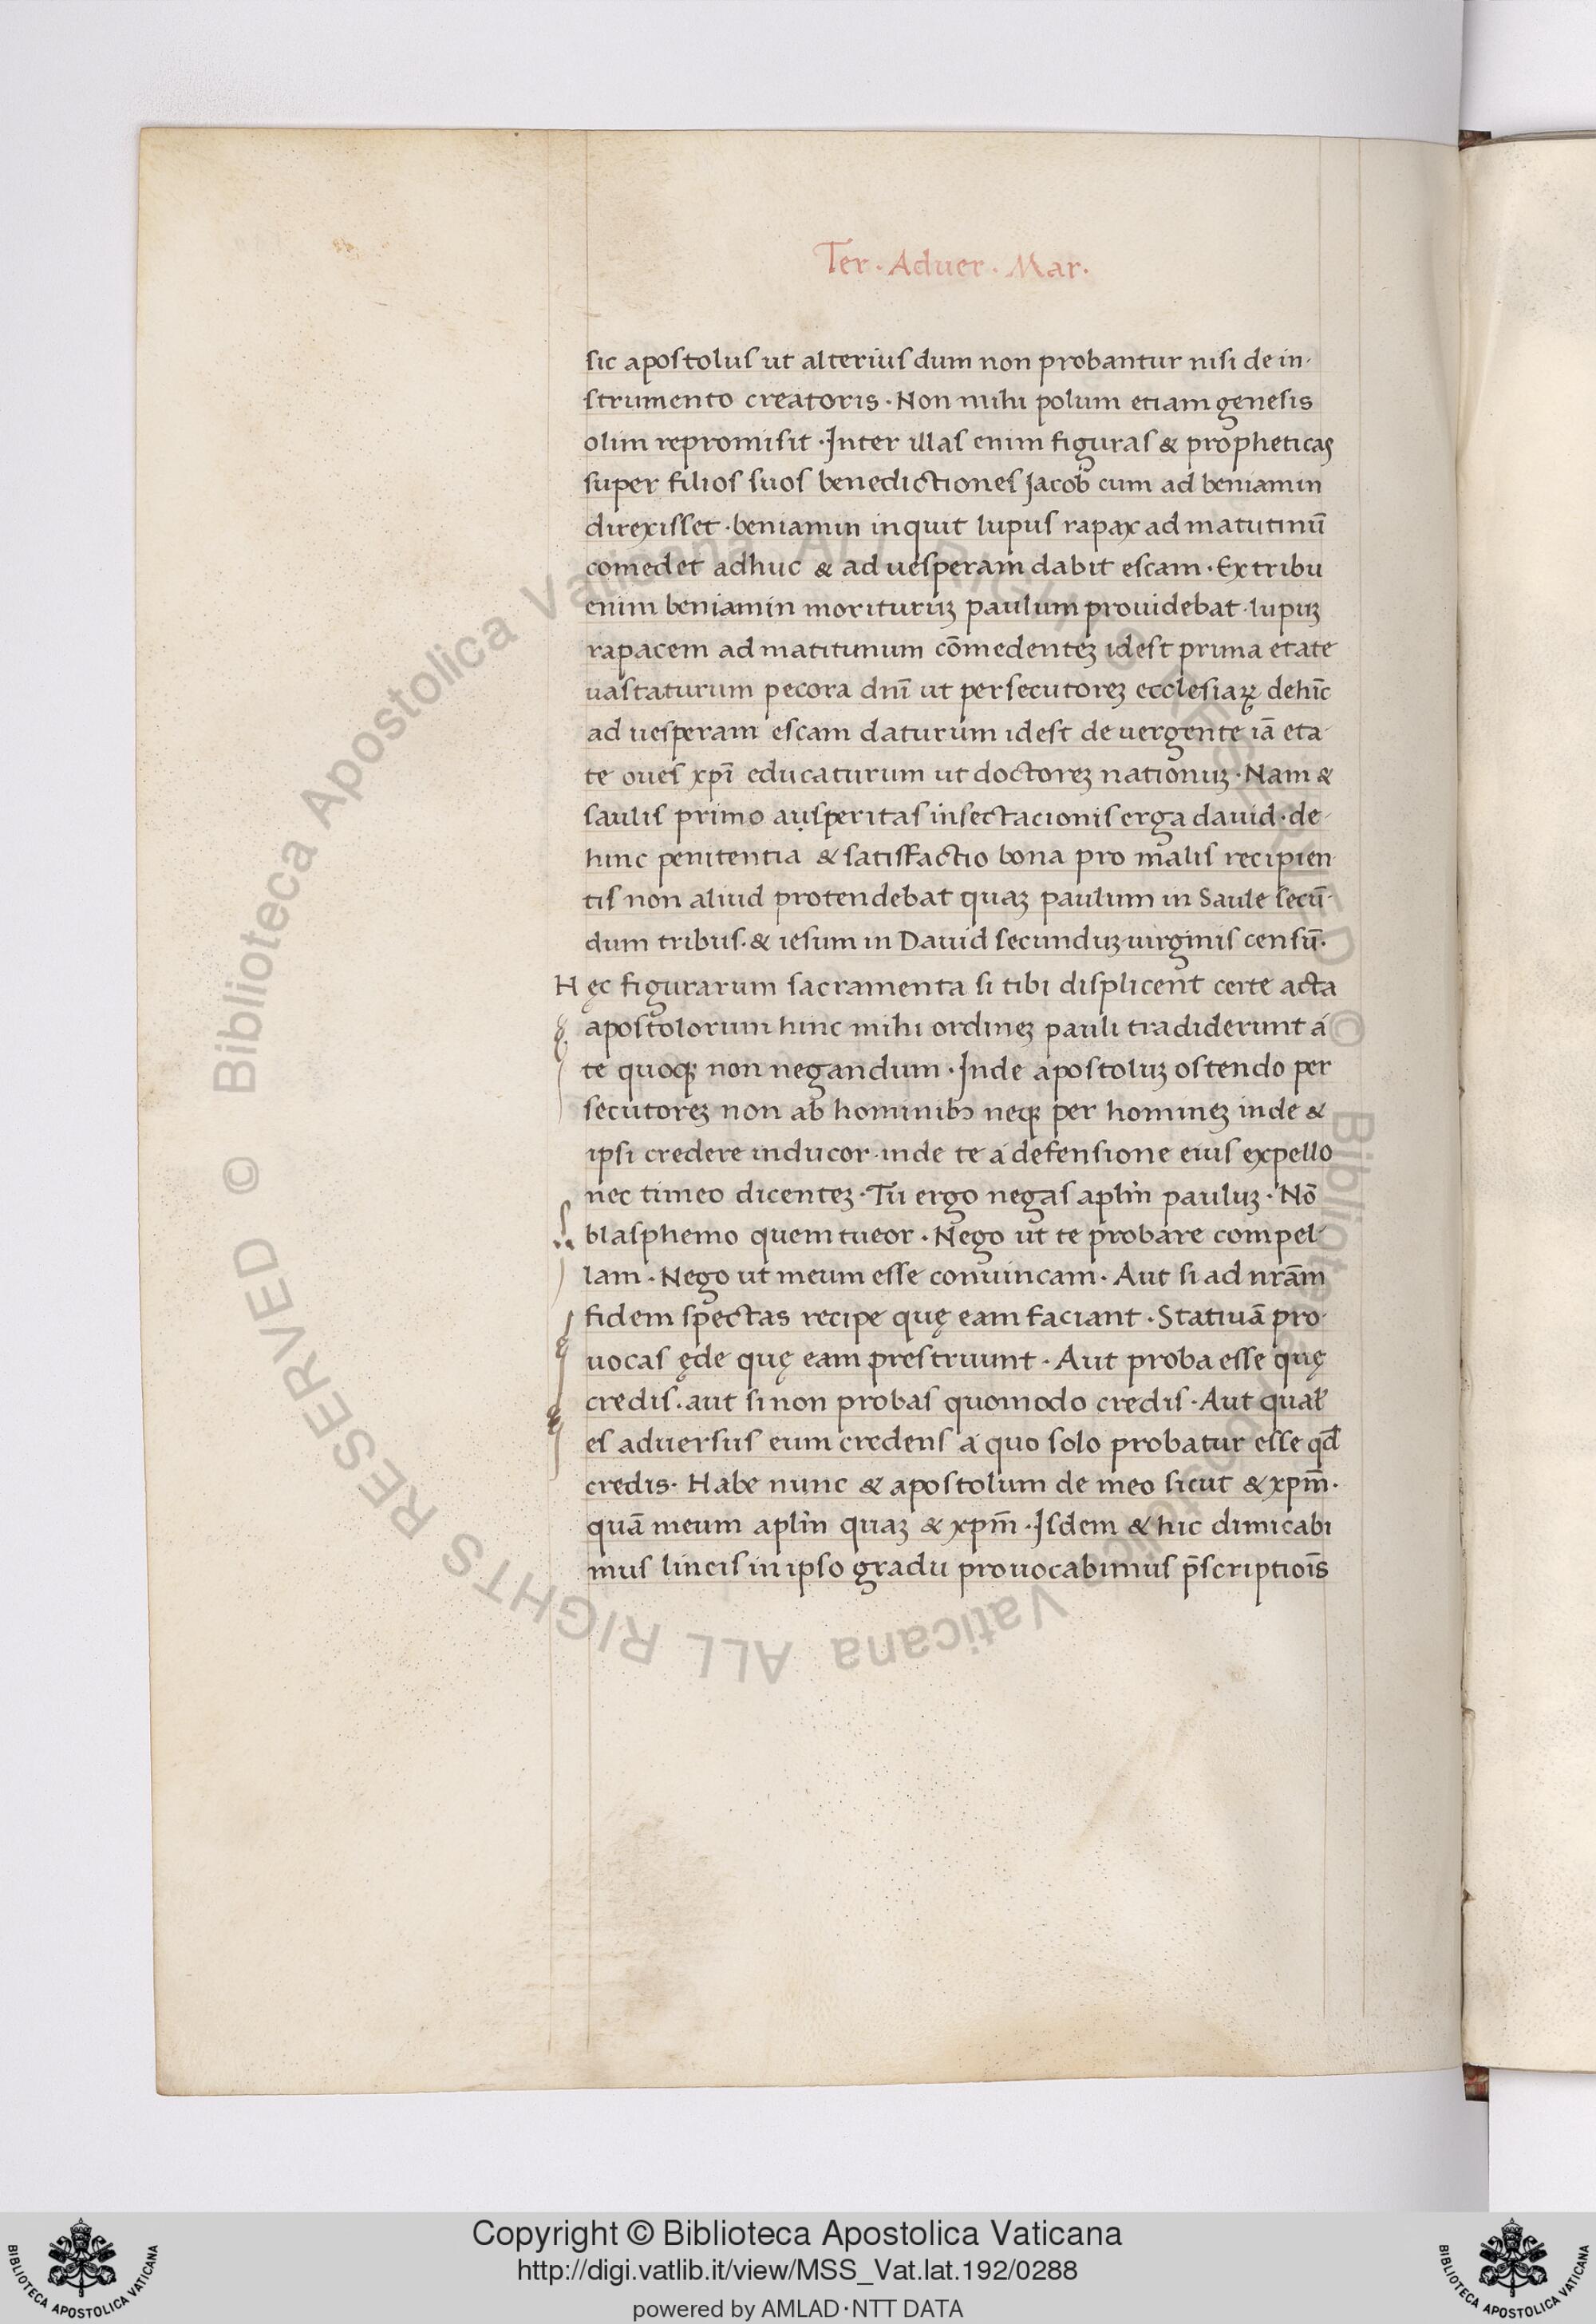 Ter · Aduer · Mar ·
sic apostolus ut alterius dum non probantur nisi de in-
strumento creatoris · Non mihi polum etiam genesis
olim repromisit · Inter illas enim figuras & propheticas
super filios suos benedictiones Jacob cum ad beniamin
direxisset · beniamin inquit lupus rapax ad matutinū
comedet adhuc & ad uesperam dabit escam · Ex tribu
enim beniamin morituruꝫ paulum prouidebat · lupuꝫ
rapacem ad matitunum cōmedenteꝫ idest prima etate
uastaturum pecora dnī ut persecutoreꝫ ecclesiaꝝ dehīc
ad uesperam escam daturum idest de uergente iā eta-
te oues xpī educaturum ut doctoreꝫ nationuꝫ · Nam &
saulis primo auṣperitas insectacionis erga dauid · de-
hinc penitentia & satisfactio bona pro malis recipien-
tis non aliud protendebat quaꝫ paulum in Saule secū-
dum tribus · & iesum in Dauid secunduꝫ uirginis censū ·
Hęc figurarum sacramenta si tibi displicent certe acta
apostolorum hinc mihi ordineꝫ pauli tradiderunt á
te quoqꝫ non negandum · Inde apostoluꝫ ostendo per
secutoreꝫ non ab hominibꝫ neqꝫ per homineꝫ inde &
ipsi credere inducor · inde te á defensione eius expello
nec timeo dicenteꝫ · Tu ergo negas aplm̄ pauluꝫ · Nō
blasphemo quem tueor · Nego ut te probare compel-
lam · Nego ut meum esse conuincam · Aut si ad nrām
fidem spectas recipe quę eam faciant · Statiuā pro-
uocas ęde quę eam prestruunt · Aut proba esse quę
credis · aut si non probas quomodo credis · Aut qual̄
es aduersus eum credens á quo solo probatur esse qd̄
credis · Habe nunc & apostolum de meo sicut & xpm̄ ·
quā meum aplm̄ quaꝫ & xpm̄ · Isdem & hic dimicabi
mus lincis in ipso gradu prouocabimus p̄scriptiois̄
Biblioteca Apostolica Vaticana ALL RIGHTS RESERVED © Biblioteca Apostolica Vaticana ALL RIGHTS RESERVED ©
Copyright © Biblioteca Apostolica Vaticana
http://digi.vatlib.it/view/MSS_Vat.lat.192/0288
powered by AMLAD·NTT DATA
BIBLIOTECA APOSTOLICA VATICANA
BIBLIOTECA APOSTOLICA VATICANA